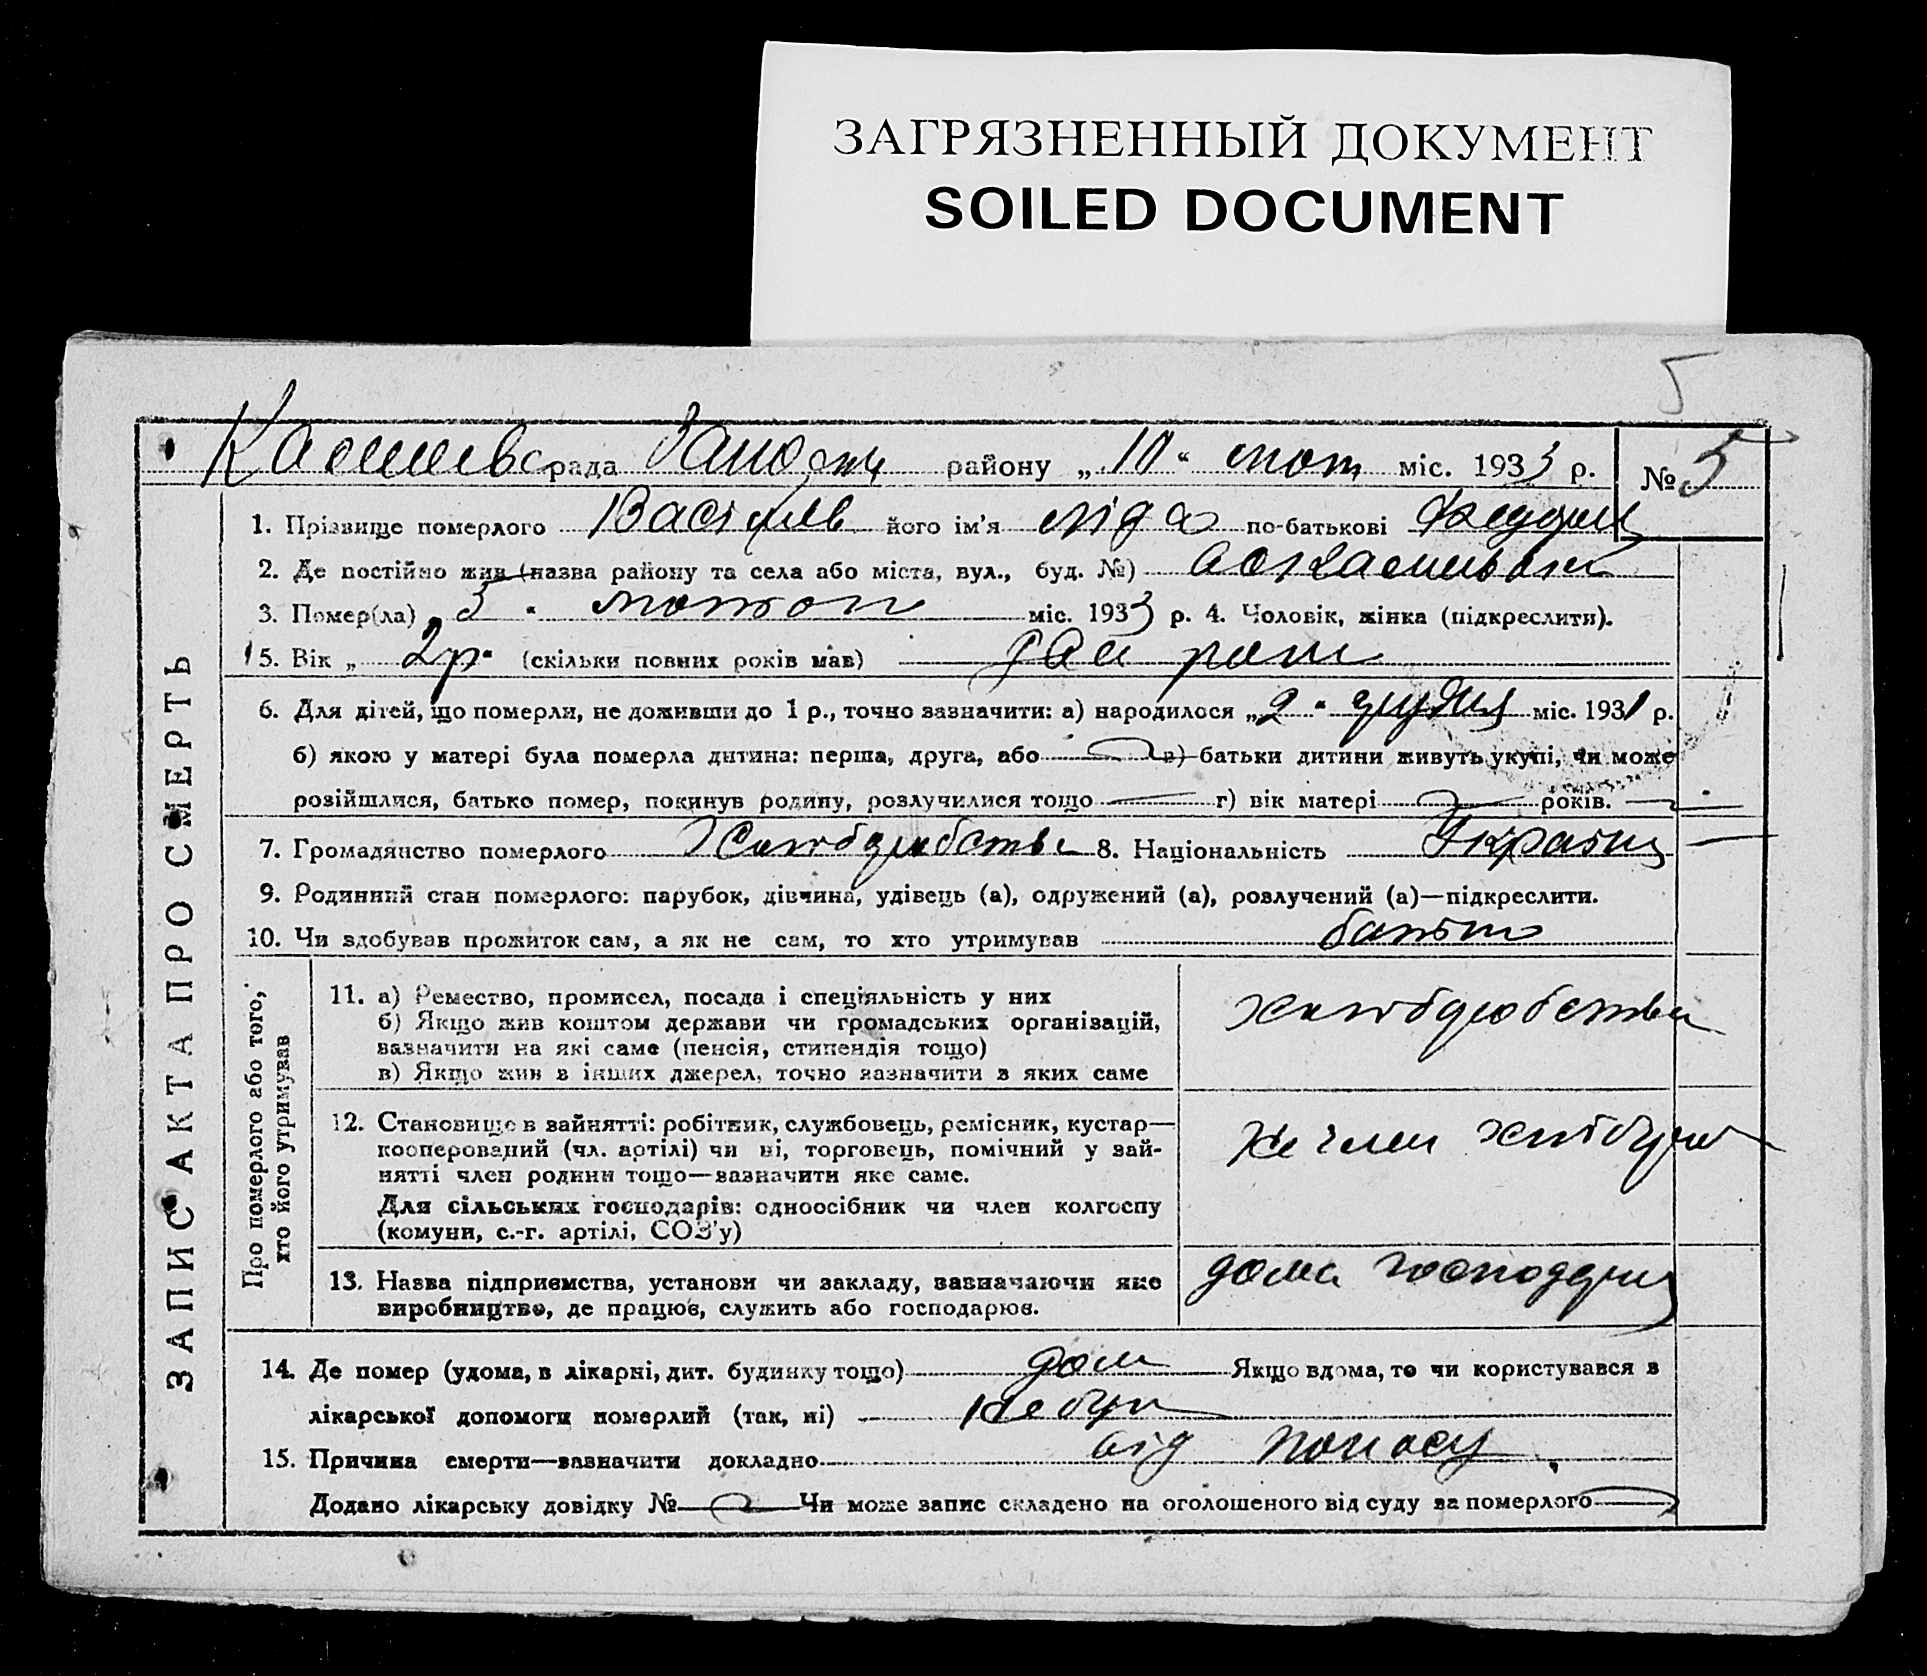 ЗАГРЯЗНЕННЫЙ ДОКУМЕНТ
SOILED DOCUMENT
5
рада району „ 10 “ міс. 1933 р. № 5
1. Прізвище померлого його ім'я ліда по-батькові
2. Де постійно жив (назва району та села або міста, вул., буд. №)
3. Помер(ла) „ 5 “ міс. 1933 р. 4. Чоловік, жінка (підкреслити).
5. Вік „ 2р “ (скільки повних років мав) два
6. Для дітей, що померли, не доживши до 1 р., точно зазначити: а) народилося „ 2 “ грудня міс. 1931 р.
б) якою у матері була померла дитина: перша, друга, або в) батьки дитини живуть укупі, чи може
розійшлися, батько помер, покинув родину, розлучилися тощо г) вік матері років.
7. Громадянство померлого 8. Національність
9. Родинний стан померлого: парубок, дівчина, удівець (а), одружений (а), розлучений (а)—підкреслити.
10. Чи здобував прожиток сам, а як не сам, то хто утримував батько
ЗАПИС АКТА ПРО СМЕРТЬ
Про померлого або того,
хто його утримував
11. а) Ремество, промисел, посада і спеціяльність у них
б) Якщо жив коштом держави чи громадських організацій,
зазначити на які саме (пенсія, стипендія тощо)
в) Якщо жив з інших джерел, точно зазначити з яких саме
12. Становище в зайнятті: робітник, службовець, ремісник, кустар—
кооперований (чл. артілі) чи ні, торговець, помічний у зай-
нятті член родини тощо—зазначити яке саме.
Для сільських господарів: одноосібник чи член колгоспу
(комуни, с.-г. артілі, СОЗ'у)
не член
13. Назва підприємства, установи чи закладу, зазначаючи яке
виробництво, де працює, служить або господарює.
дома
14. Де помер (удома, в лікарні, дит. будинку тощо) дом Якщо вдома, то чи користувався з
лікарської допомоги померлий (так, ні)
15. Причина смерти—зазначити докладно від поносу
Додано лікарську довідку № Чи може запис складено на оголошеного від суду за померлого